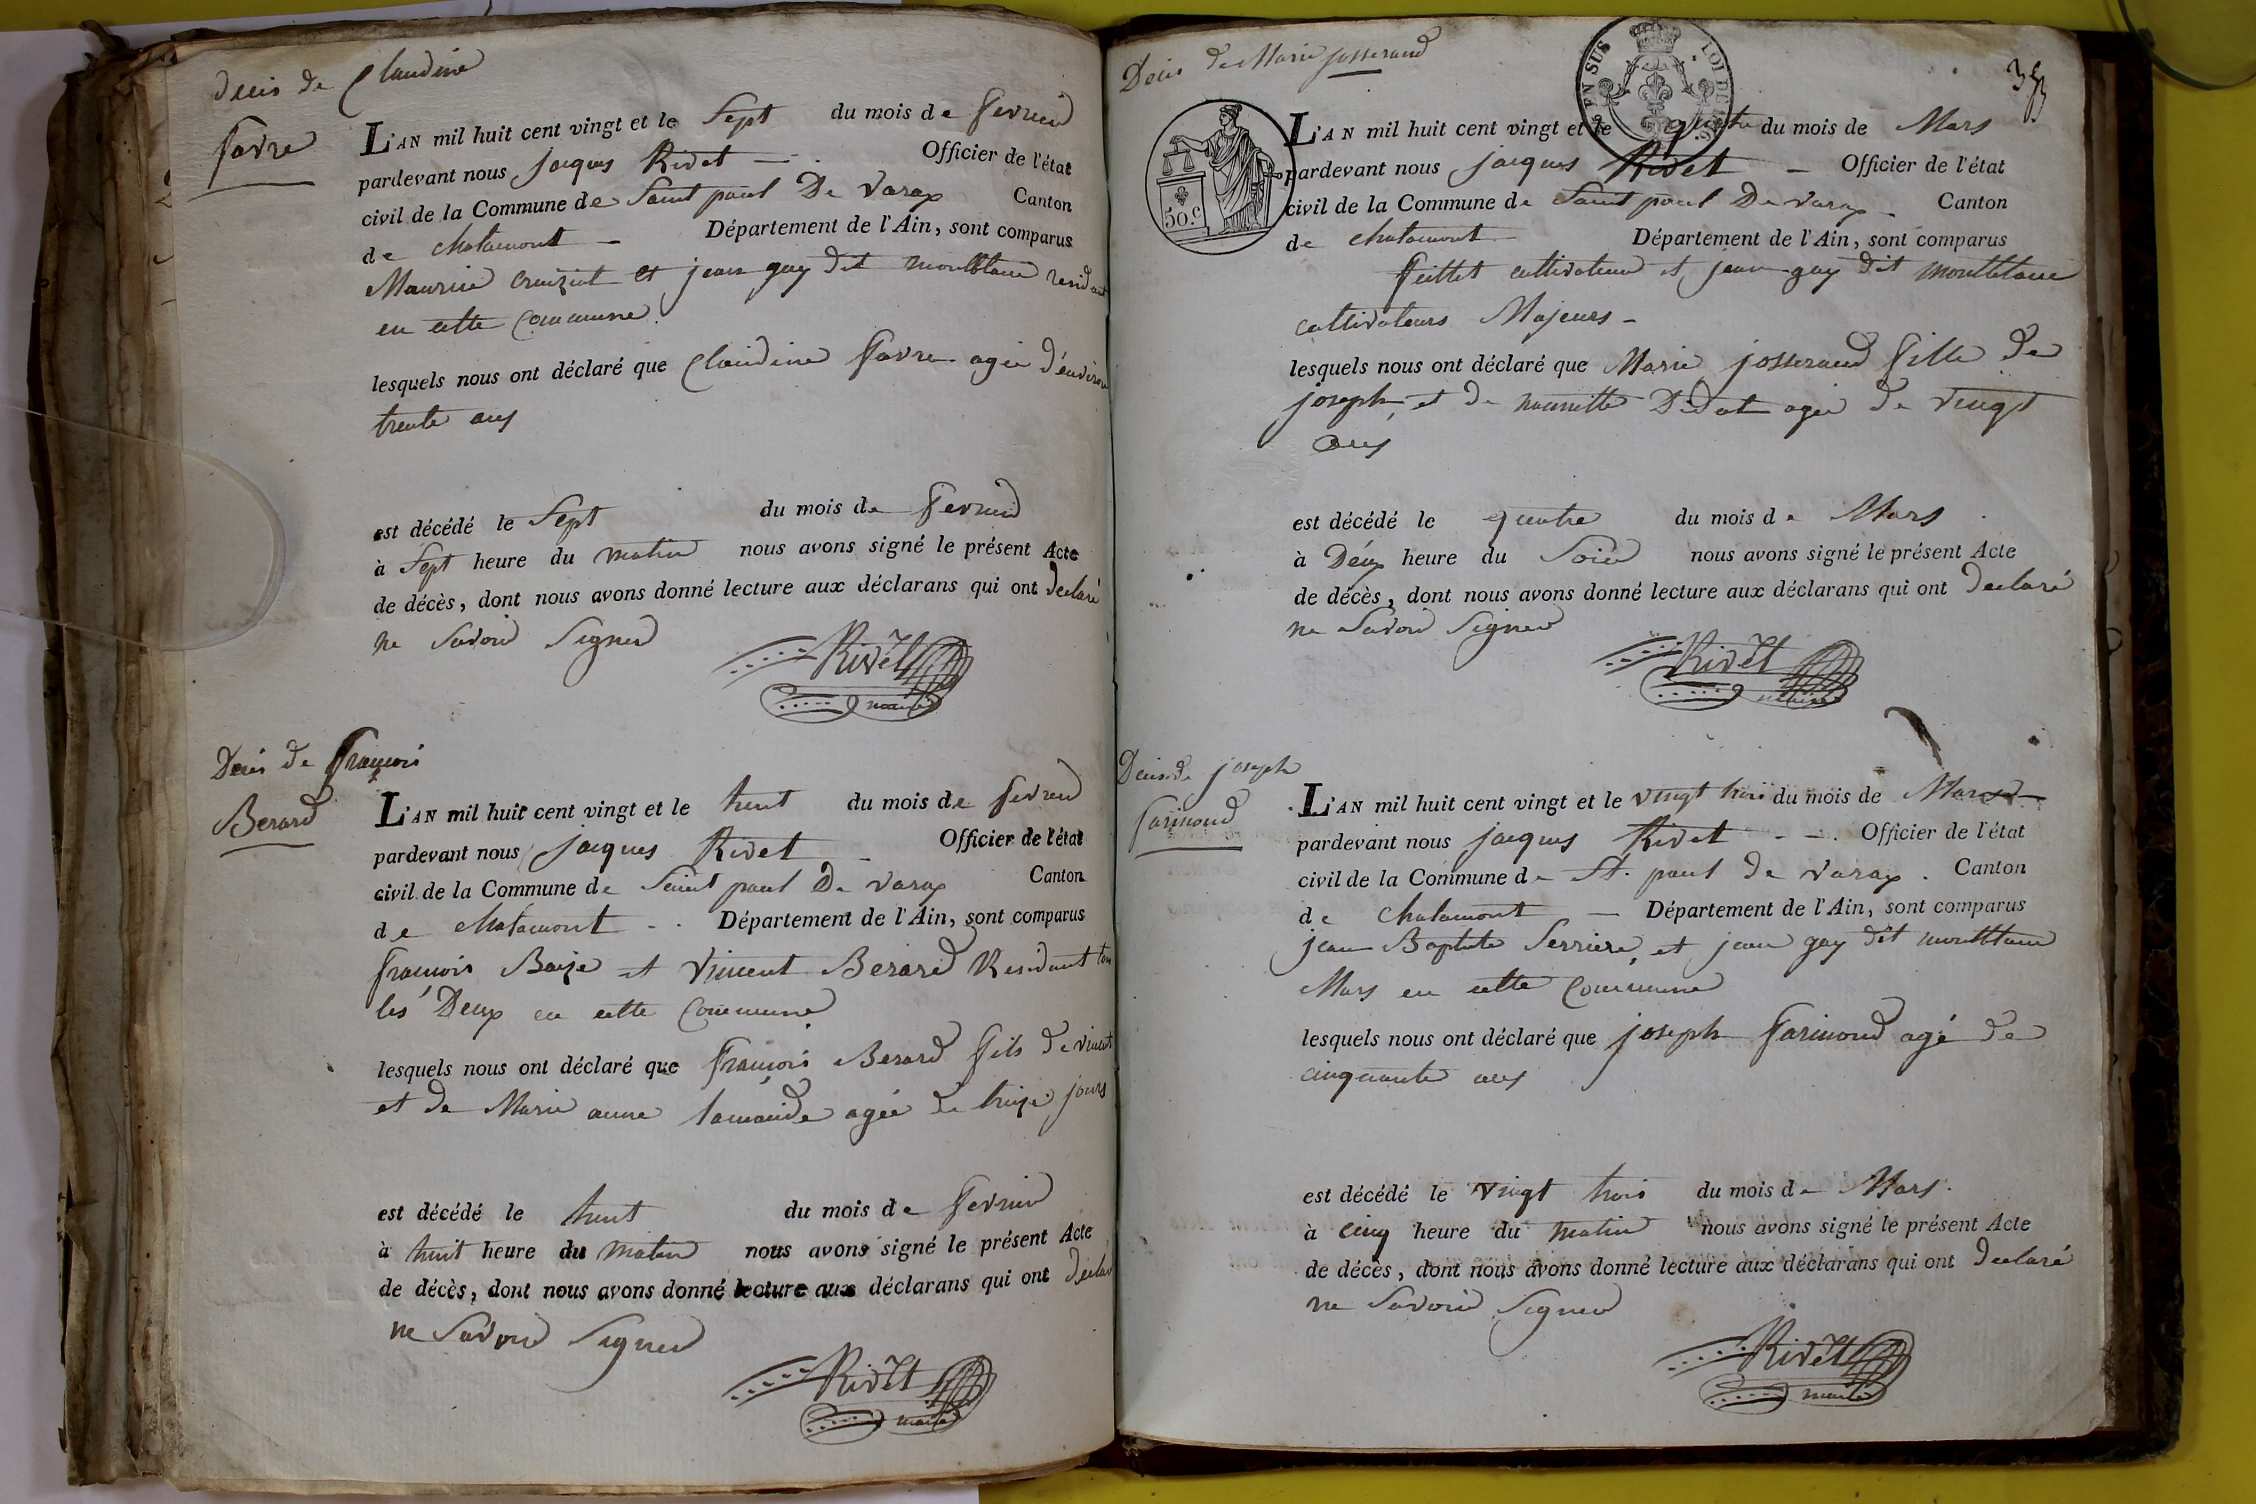 Decés de Claudine
favre
L'AN mil huit cent vingt et le Sept du mois de fevrier
pardevant nous jacques Rivet Officier de l'état
civil de la Commune de Saint paul De Varax Canton
de chalamont Département de l'Ain, sont comparus
Maurice cruiziat et jean gay dit résidant
en cette Commune
lesquels nous ont déclaré que Claudine favre agée d'environ
trente ans
est décédé le Sept du mois de fevrier
à Sept heure du matin nous avons signé le présent Acte
de décès, dont nous avons donné lecture aux déclarans qui ont declaré
ne Savoir Signer
Rivet
maire
Décés de françois
Berard
L'AN mil huit cent vingt et le huit du mois de fevrier
pardevant nous jacques Rivet Officier de l'état
civil de la Commune de Saint paul De Varax Canton
de chalamont Département de l'Ain, sont comparus
françois Baize et Vincent Berard Residant tous
les Deux en cette Commune
lesquels nous ont déclaré que françois Berard fils de vincent
et de Marie anne lamande agée de treize jours
est décédé le huit du mois de fevrier
à huit heure du matin nous avons signé le présent Acte
de décès, dont nous avons donné lecture aux déclarans qui ont declaré
ne Savoir Signer
Rivet
maire
Décés de Marie josserand
EN SUS LOI DE
50.c
L'AN mil huit cent vingt et le quatre du mois de Mars
pardevant nous jacques Rivet Officier de l'état
civil de la Commune de Saint paul De Varax Canton
de chalamont Département de l'Ain, sont comparus
feillet cultivateur et jean gay dit
cultivateurs Majeurs
lesquels nous ont déclaré que Marie josserand fille de
joseph et de Didat agée de vingt
ans
est décédé le quatre du mois de Mars
à Deux heure du Soir nous avons signé le présent Acte
de décès, dont nous avons donné lecture aux déclarans qui ont declaré
ne Savoir Signer
Rivet
maire
Décés de joseph
farimond
L'AN mil huit cent vingt et le vingt trois du mois de Mars
pardevant nous jacques Rivet Officier de l'état
civil de la Commune de St. paul de Varax Canton
de chalamont Département de l'Ain, sont comparus
jean Baptiste Serriere, et jean gay dit
Mars en cette Commune
lesquels nous ont déclaré que joseph farimond agé de
cinquante ans
est décédé le vingt trois du mois de Mars
à cinq heure du matin nous avons signé le présent Acte
de décès, dont nous avons donné lecture aux déclarans qui ont declaré
ne Savoir Signer
Rivet
maire